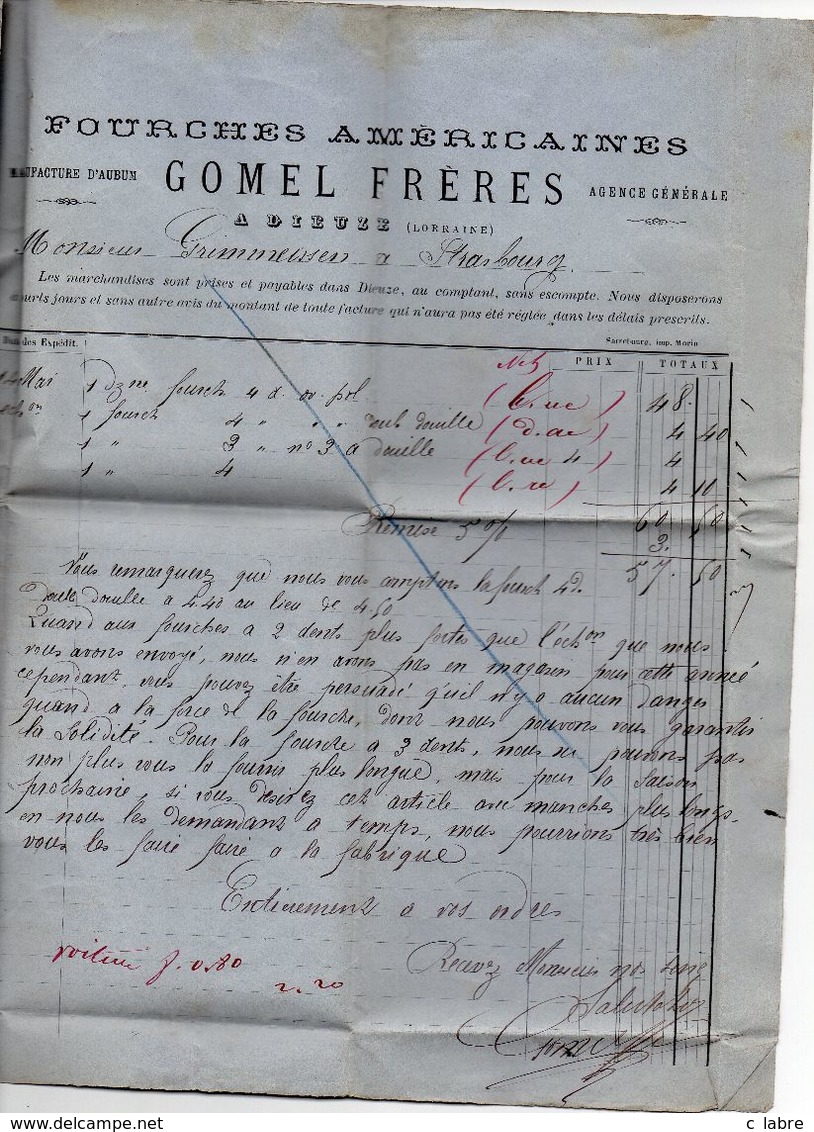 FOURCHES AMÉRICAINES
MANUFACTURE D'AUBUM GOMEL FRÈRES AGENCE GÉNÉRALE
A DIEUZE (LORRAINE)
Monsieur Grimmeissen a Strasbourg
Les marchandises sont prises et payables dans Dieuze, au comptant, sans escompte. Nous disposerons
courts jours et sans autre avis du montant de toute facture qui n'aura pas été réglée dans les délais prescrits.
des Expédit. Sarrebourg, imp. Morin
Net PRIX TOTAUX
Mai 1 dzne fourch 4 d. or. pol 48.
1 fourch 4 " " " doub douille 4 40
1 " 3 " no 3 a douille 4
1 " 4 4 10
60 50
Remise 5 % 3.
57. 50
Vous remarquerez que nous vous comptons la fourch 4d.
doub douille a 4.40 au lieu de 4.50
Quand aux fourches a 2 dents plus fortes que l'échon que nous
vous avons envoyé, nous n'en avons pas en magasin pour cette année
cependant, vous pouvez être persuadé qu'il n'y a aucun danger
quand a la force de la fourche, dont nous pouvons vous garantir
la solidité. Pour la fourche a 3 dents, nous ne pouvons pas
non plus vous la fournir plus longue, mais pour la saison
prochaine, si vous desirez cet article avec manches plus longs,
en nous les demandant a temps, nous pourrions très bien
vous les faire faire a la fabrique
Entierement a vos ordres
voiture f. 0.80
Recevez Monsieur nos sinc
2.20
Salutation
c labre
www.delcampe.net